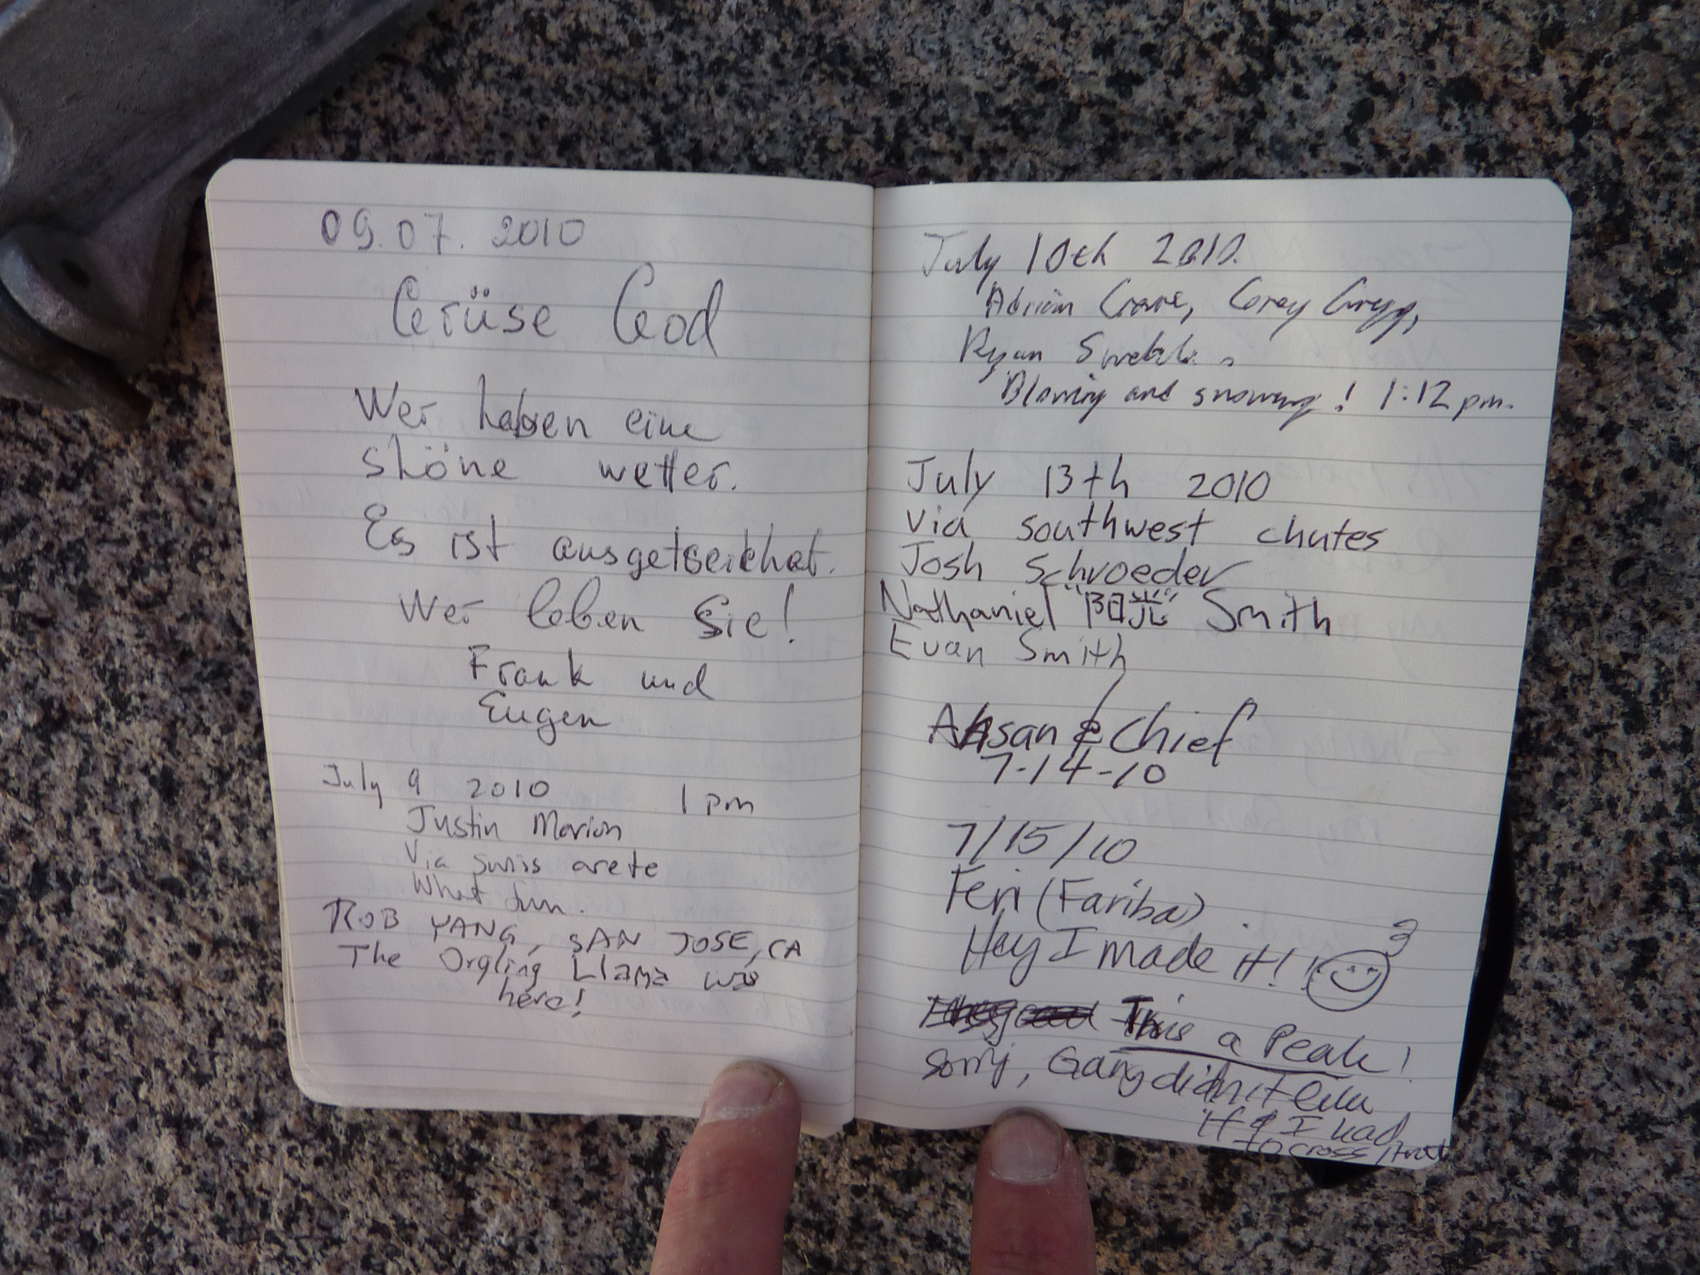 09.07.2010
Grüse God
Wer haben eine
shöne wetter.
Es ist ausgetseichet.
Wer loben Sie!
Frank und
Eugen
July 9 2010 1 pm
Justin Marion
Via swiss arete
What fun.
ROB YANG, SAN JOSE, CA
The Orgling Llama was
here!
July 10th 2010.
Adrian Crane, Corey Gregg,
Ryan
Blowing and snowing! 1:12 pm.
July 13th 2010
via southwest chutes
Josh Schroeder
Nathaniel "阳光" Smith
Evan Smith
Ahsan & Chief
7-14-10
7/15/10
Feri (Fariba)
Hey I made it!!
This a Peak!
Sorry, Gang didn't
if I had
to cross